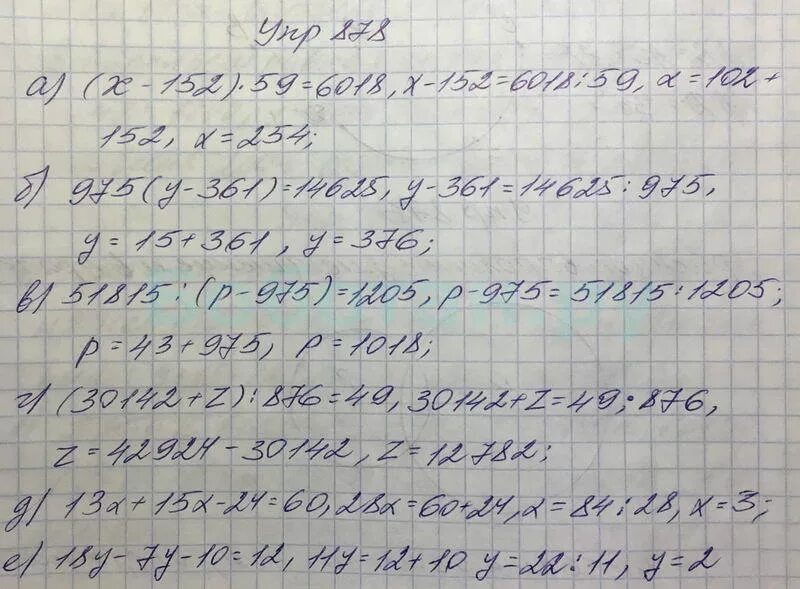 Упр 878
а) (x - 152)·59=6018, x-152=6018:59, x=102+
152, x=254;
б) 975(y-361)=14625, y-361=14625:975,
y=15+361, y=376;
в) 51815:(p-975)=1205, p-975=51815:1205;
p=43+975, p=1018;
г) (30142+z):876=49, 30142+z=49·876,
z=42924-30142, z=12782;
д) 13x+15x-24=60, 28x=60+24, x=84:28, x=3;
е) 18y-7y-10=12, 11y=12+10 y=22:11, y=2